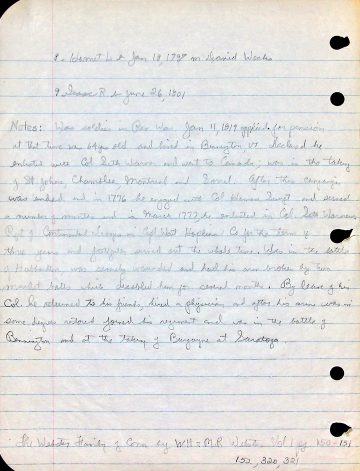 8 - Harriet b Jan 18, 179 m Daniel Weeks
9 R b June 26, 1801
Notes: Was soldier in Rev War. Jan 11, 1819 applied for pension
at that time was 64 yrs old and lived in Burlington Vt. Declared he
enlisted under Col Seth Warner and went to Canada; was in the taking
of St Johns, Chamblee, Montreal and Sorrel. After this campaign
was ended and in 1776 he engaged with Col and served
a number of months and in March 1777 he enlisted in Col Seth Warner's
Regt of Continental troops in Capt Wait Hopkins Co for the term of
three years and served out the whole time. Was in the battle
of Hubbardton, was severely wounded and had his arm broke by two
musket balls which disabled him for several months. By leave of his
Col. he returned to his friends, hired a physician, and after his arm was in
some degree restored joined his regiment and was in the battle of
Bennington and at the taking of Burgoyne at Saratoga.
The Webster Family of Conn by WH & MR Webster Vol 1 pg 150-151
152, 320, 321